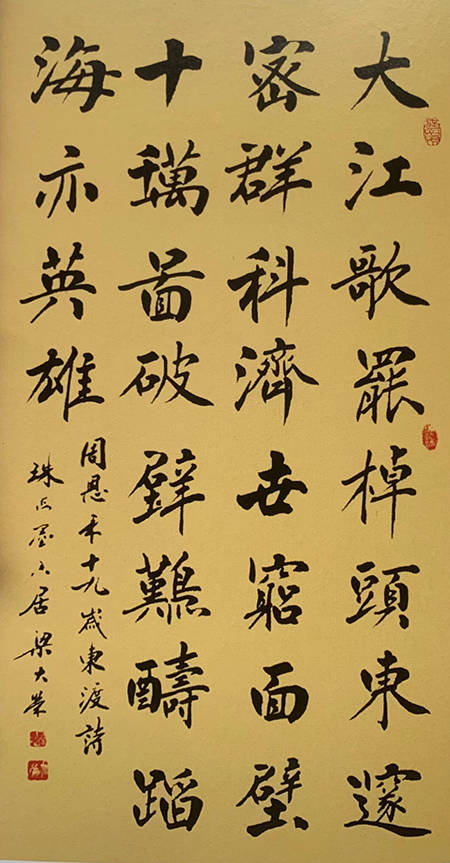 大江歌罷棹頭東邃
密群科濟世窮面壁
十啚破壁難醻蹈
海亦英雄
周恩來十九歲東渡詩
居梁大